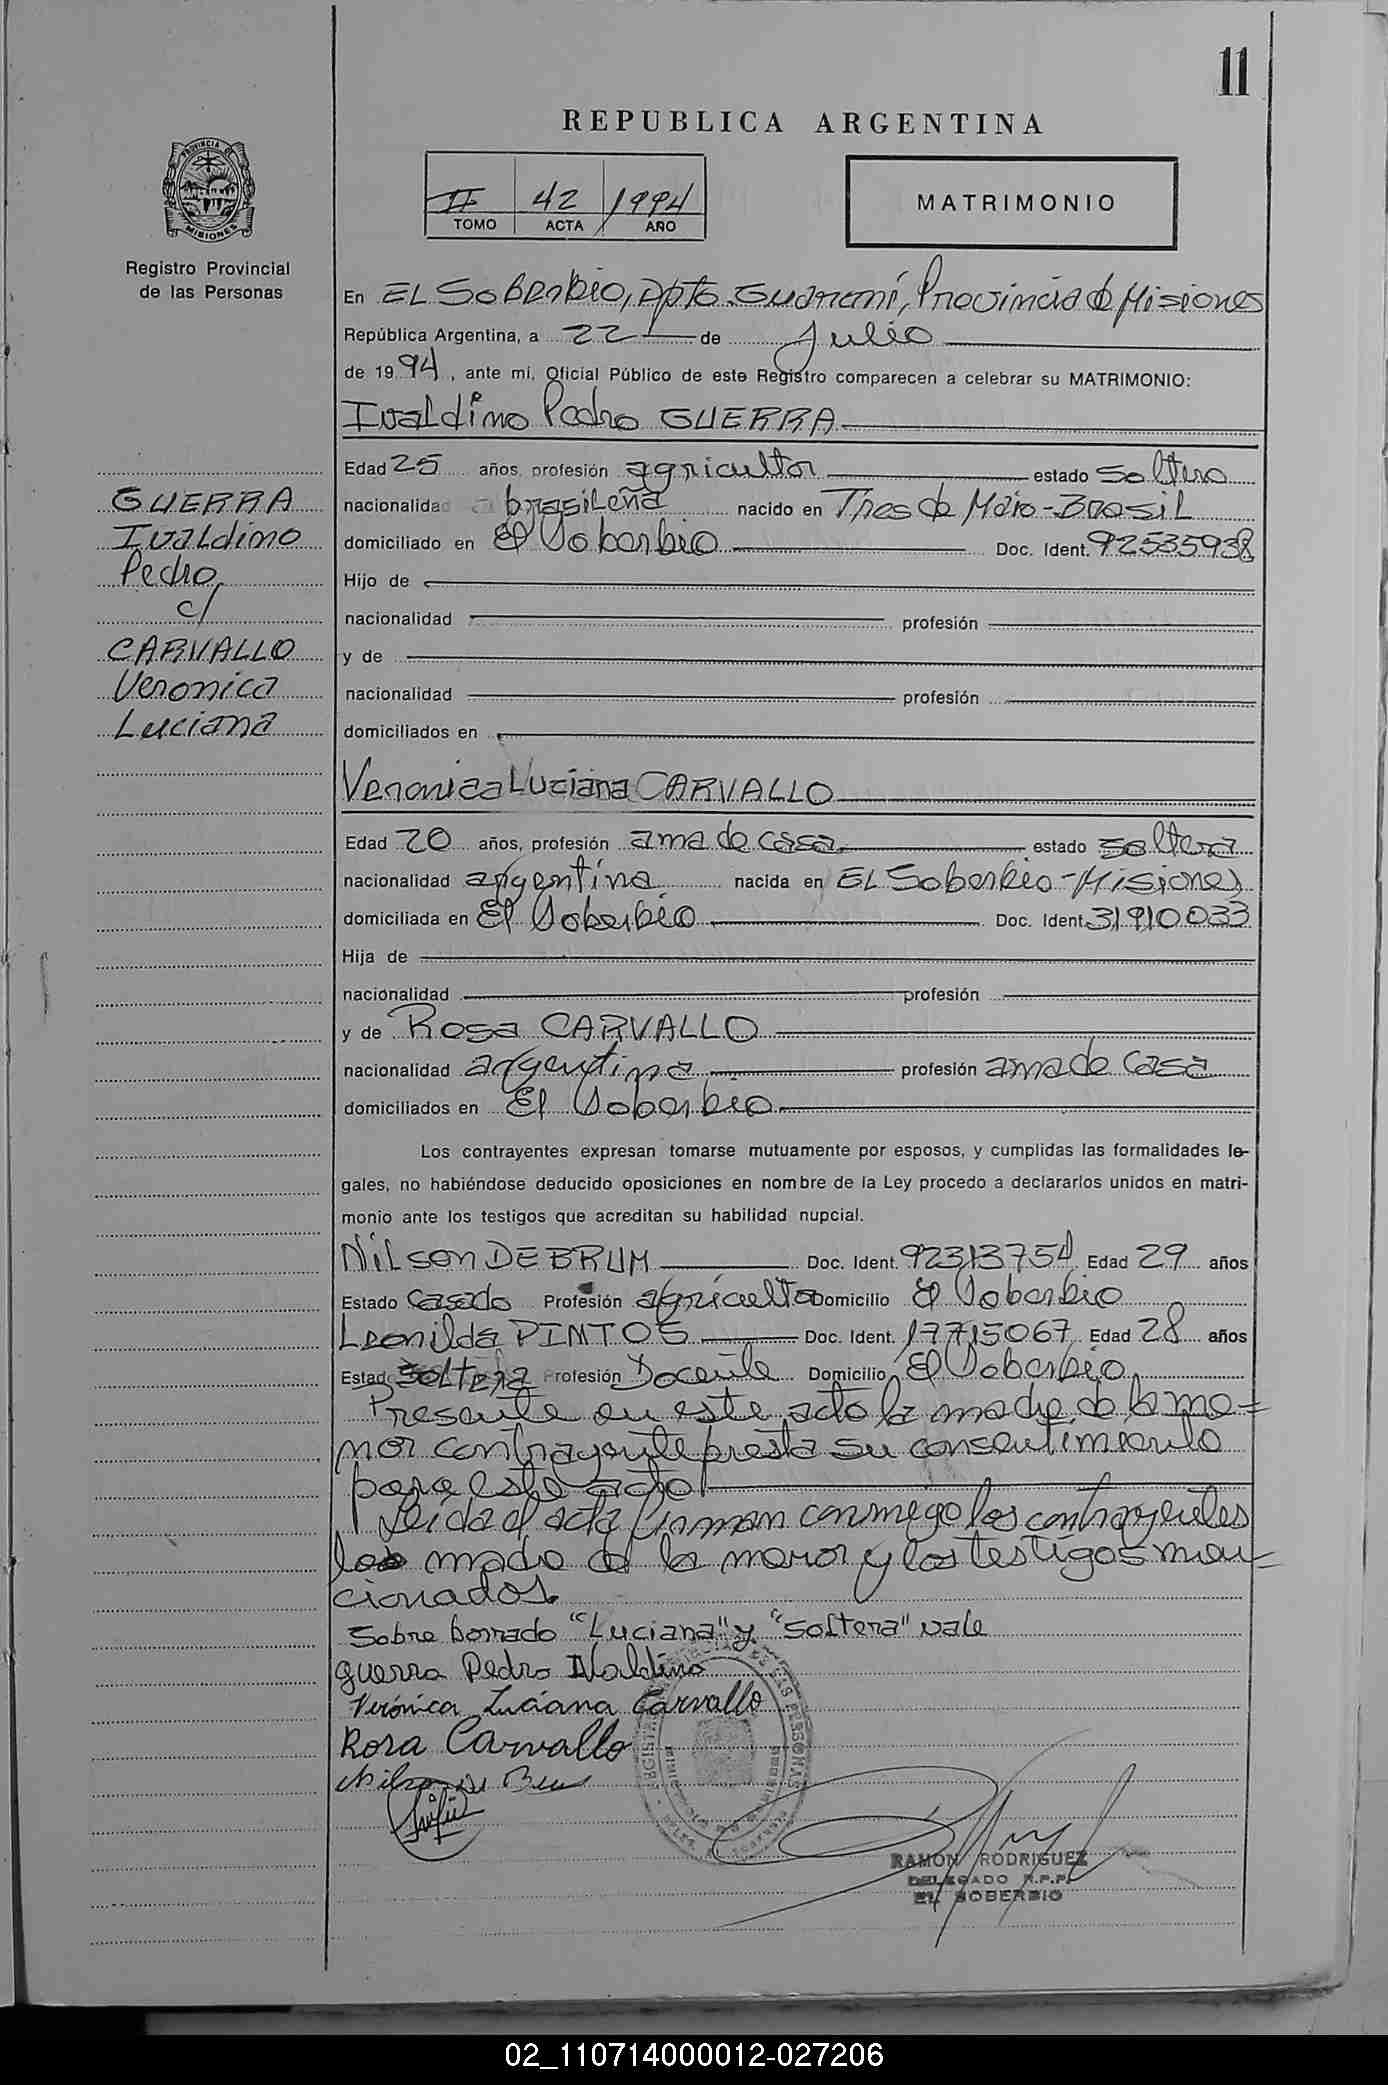 11
REPUBLICA ARGENTINA
II 42 1994
TOMO ACTA AÑO
MATRIMONIO
PROVINCIA DE MISIONES
Registro Provincial
de las Personas
En EL Soberbio, Dpto. Guaraní, Provincia de Misiones
República Argentina, a 22 de Julio
de 1994, ante mí, Oficial Público de este Registro comparecen a celebrar su MATRIMONIO:
Ivaldino Pedro GUERRA
Edad 25 años, profesión agricultor estado soltero
nacionalidad brasileña nacido en Tres de Maio - Brasil
domiciliado en El Soberbio Doc. Ident. 92535938
Hijo de
nacionalidad profesión
y de
nacionalidad profesión
domiciliados en
GUERRA
Ivaldino
Pedro
c/
CARVALLO
Veronica
Luciana
Veronica Luciana CARVALLO
Edad 20 años, profesión ama de casa estado soltera
nacionalidad argentina nacida en EL Soberbio - Misiones
domiciliada en El Soberbio Doc. Ident. 31910033
Hija de
nacionalidad profesión
y de Rosa CARVALLO
nacionalidad argentina profesión ama de casa
domiciliados en El Soberbio
Los contrayentes expresan tomarse mutuamente por esposos, y cumplidas las formalidades le-
gales, no habiéndose deducido oposiciones en nombre de la Ley procedo a declararlos unidos en matri-
monio ante los testigos que acreditan su habilidad nupcial.
Nilson DE BRUM Doc. Ident. 92313754 Edad 29 años
Estado Casado Profesión agricultor Domicilio El Soberbio
Leonilda PINTOS Doc. Ident. 17715067 Edad 28 años
Estado soltera Profesión Docente Domicilio El Soberbio
Presente en este acto la madre de la me=
nor contrayente presta su consentimiento
para este acto
Leida el acta firman conmigo los contrayentes
la madre de la menor y los testigos men=
cionados.
Sobre borrado "Luciana" y "soltera" vale
guerra Pedro Ivaldino
Verónica Luciana Carvallo
Rosa Carvallo
Nilson De Brum
RAMON RODRIGUEZ
DELEGADO R.P.P.
EL SOBERBIO
02_110714000012-027206